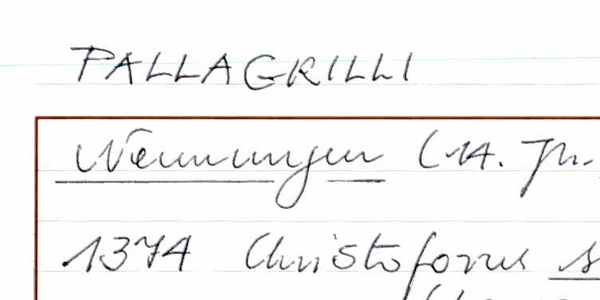 PALLAGRILLI
Nennungen (14. Jh.
1374 Christoforus